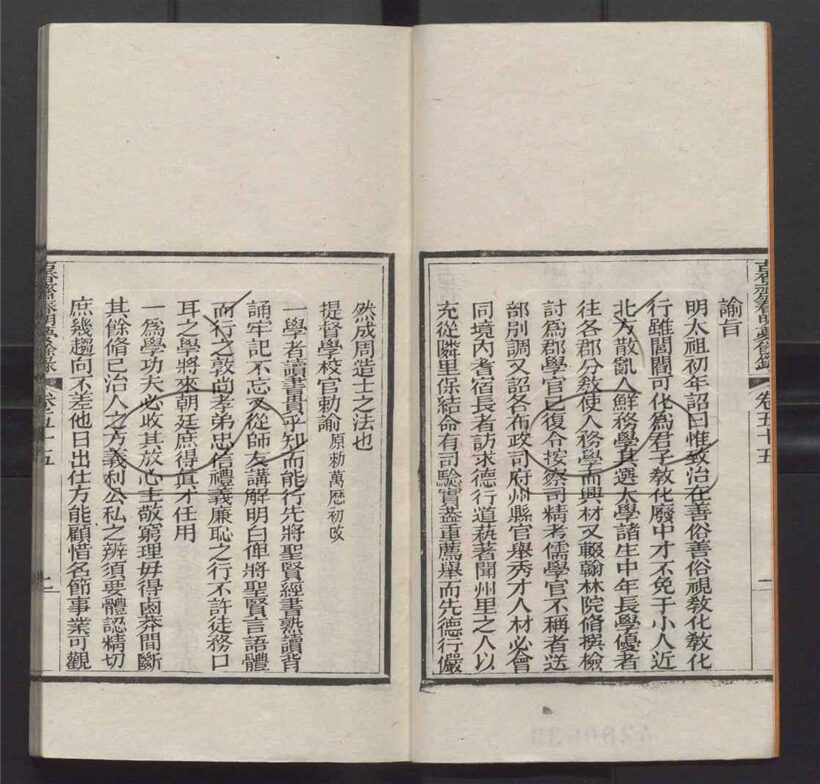 諭言
明太祖初年詔曰惟致治在善俗善俗視敎化敎化
行雖閭閻可化爲君子敎化廢中才不免于小人近
北方散亂人鮮務學其選太學諸生中年長學優者
往各郡分敎使人務學而興材又輟翰林院脩撰檢
討爲郡學官已復令按察司精考儒學官不稱者送
部別調又詔各布政司府州縣官舉秀才人材必會
同境內耆宿長者訪求德行道蓺著聞州里之人以
充從隣里保結命有司驗實葢重薦舉而先德行儼
卷五十五
二
然成周造士之法也
提督學校官勅諭原勅萬厯初改
一學者讀書貴乎知而能行先將聖賢經書熟讀背
誦牢記不忘又從師友講解明白俾將聖賢言語體
而行之敦尚孝弟忠信禮義廉恥之行不許徒務口
耳之學將來朝廷庶得眞才任用
一爲學功夫必收其放心主敬窮理毋得鹵莽間斷
其餘脩已治人之方義利公私之辨須要體認精切
庶幾趨向不差他日出仕方能顧惜名節事業可觀
卷五十五
二